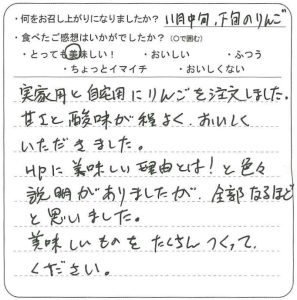 ・何をお召し上がりになりましたか？ 11月中旬、下旬のりんご
・食べたご感想はいかがでしたか？（○で囲む）
・とっても美味しい！ ・おいしい ・ふつう
・ちょっとイマイチ ・おいしくない
実家用と自宅用にりんごを注文しました。
甘さと酸味が程よく、おいしく
いただきました。
HPに美味しい理由とは！と色々
説明がありましたが、全部なるほど
と思いました。
美味しいものをたくさんつくって
ください。